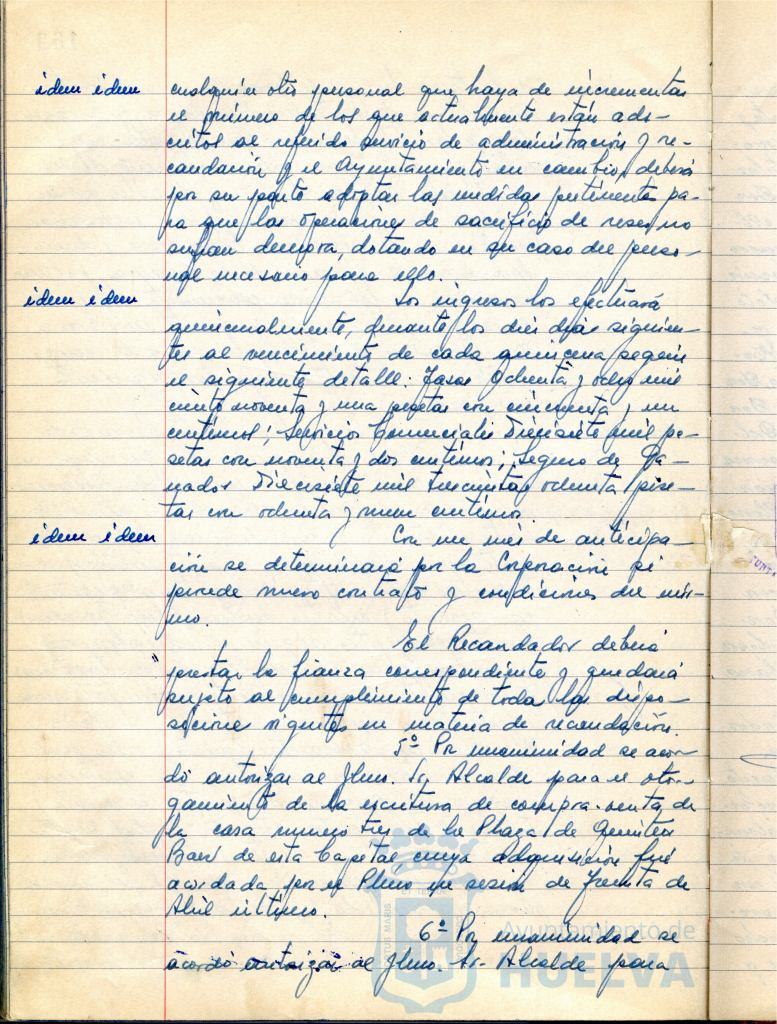 idem idem cualquier otro personal que haya de incrementar
el número de los que actualmente están ads-
critos al referido servicio de administración y re-
caudación y el Ayuntamiento en cambio, deberá
por su parte adoptar las medidas pertinentes pa-
ra que las operaciones de sacrificio de reses no
sufran demora, dotando en su caso del perso-
nal necesario para ello.
idem idem Los ingresos los efectuará
quincenalmente, durante los diez días siguien-
tes al vencimiento de cada quincena según
el siguiente detalle: Tasas Ochenta y ocho mil
ciento noventa y una pesetas con cincuenta y un
centimos; Servicios Comerciales Diecisiete mil pe-
setas con noventa y dos centimos; Seguro de Ga-
nados Diecisiete mil trescientas ochenta pese-
tas con ochenta y nueve centimos.
idem idem Con un mes de antícipa-
ción se determinará por la Corporación si
procede nuevo contrato y condiciones del mis-
mo.
El Recaudador deberá
prestar la fianza correspondiente y quedará
sujeto al cumplimiento de toda las dispo-
siciones vigentes en materia de recaudación.
5º Por unanimidad se acor-
dó autorizar al Ilmo. Sr. Alcalde para el otor-
gamiento de la escritura de compra-venta de
la casa número tres de la Plaza de Quintero
Baez de esta Capital cuya adquisición fué
acordada por el Pleno en sesión de Treinta de
Abril último.
6º Por unanimidad se
acordó autorizar al Ilmo. Sr. Alcalde para
Ayuntamiento de
HUELVA